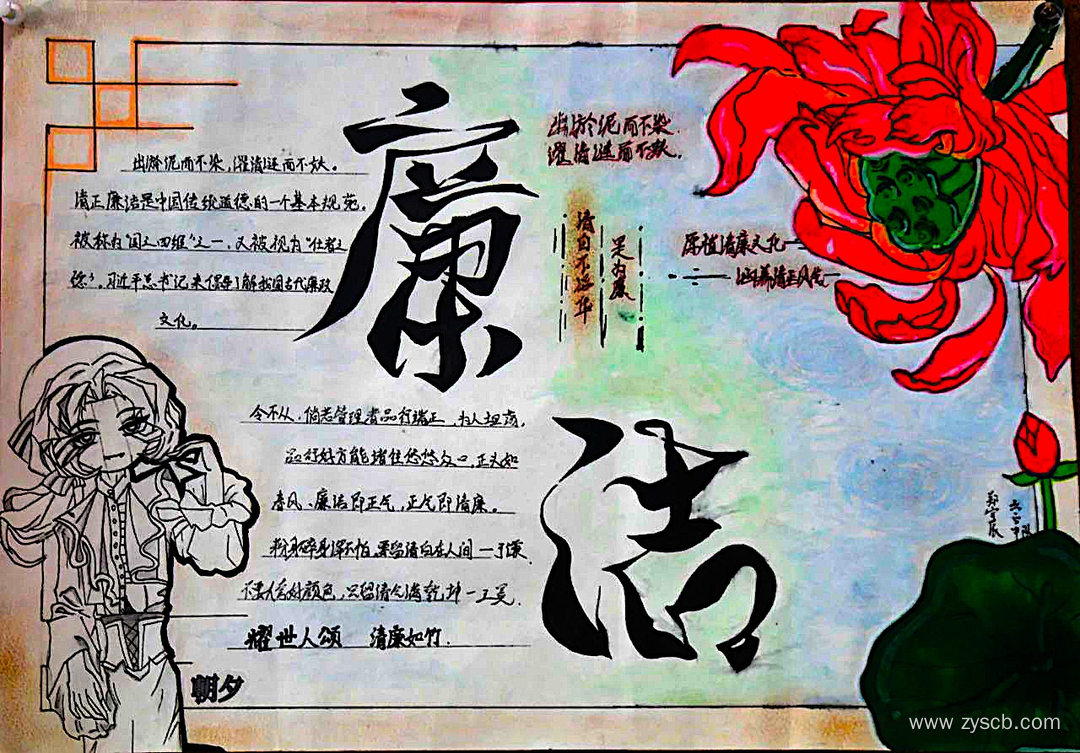 出淤泥而不染,濯清涟而不妖。
清正廉洁是中国传统道德的一个基本规范,
被称为"国之四维"之一,又被视为"仕者之
德"。习近平总书记来 了解我国古代廉政
文化。
廉
洁
出淤泥而不染.
濯清涟而不妖.
清白不 华
是为廉
厚植清廉文化
涵养清正风气
令不从.倘若管理者品行端正,为人坦荡,
品行好方能堵住悠悠众口,正头如
春风、廉洁即正气,正气即清廉。
粉身碎骨浑不怕,要留清白在人间一于谦
不要人夸好颜色,只留清气满乾坤一王冕
耀世人颂 清廉如竹.
朝夕
www.zyscb.com